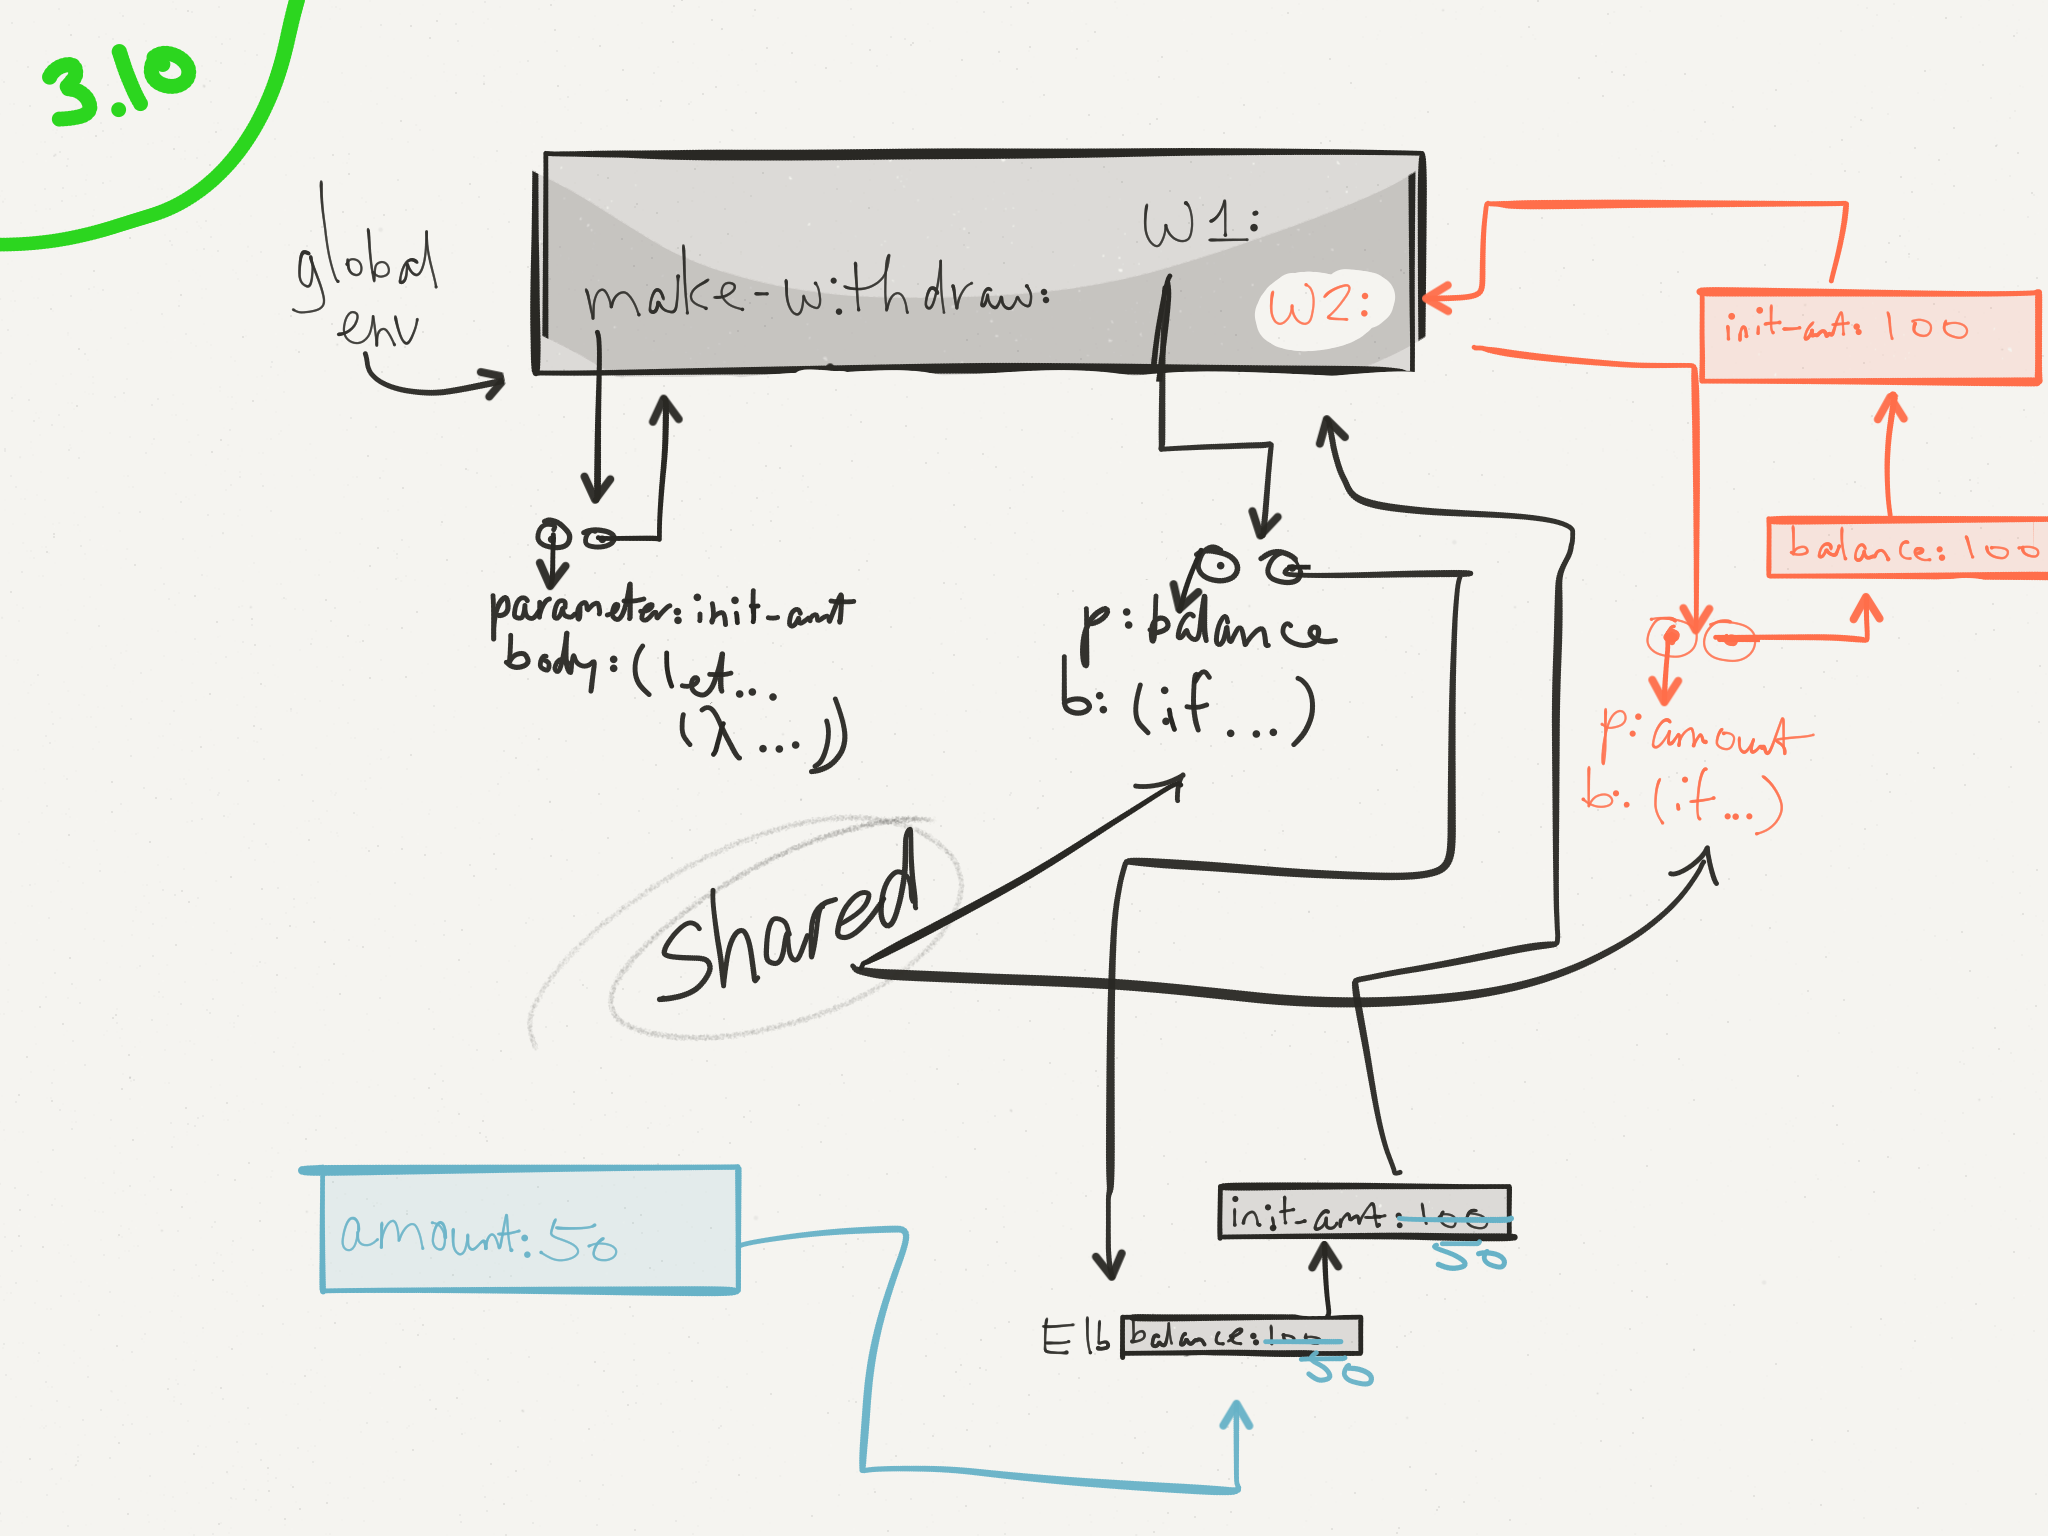 3.10
global
env
make-withdraw:
W1:
W2:
init-amt: 100
balance: 100
parameter: init-amt
body: (let...
(λ ...))
p: balance
b: (if ...)
p: amount
b: (if ...)
shared
amount: 50
init-amt: 100
50
E1b
balance: 100
50